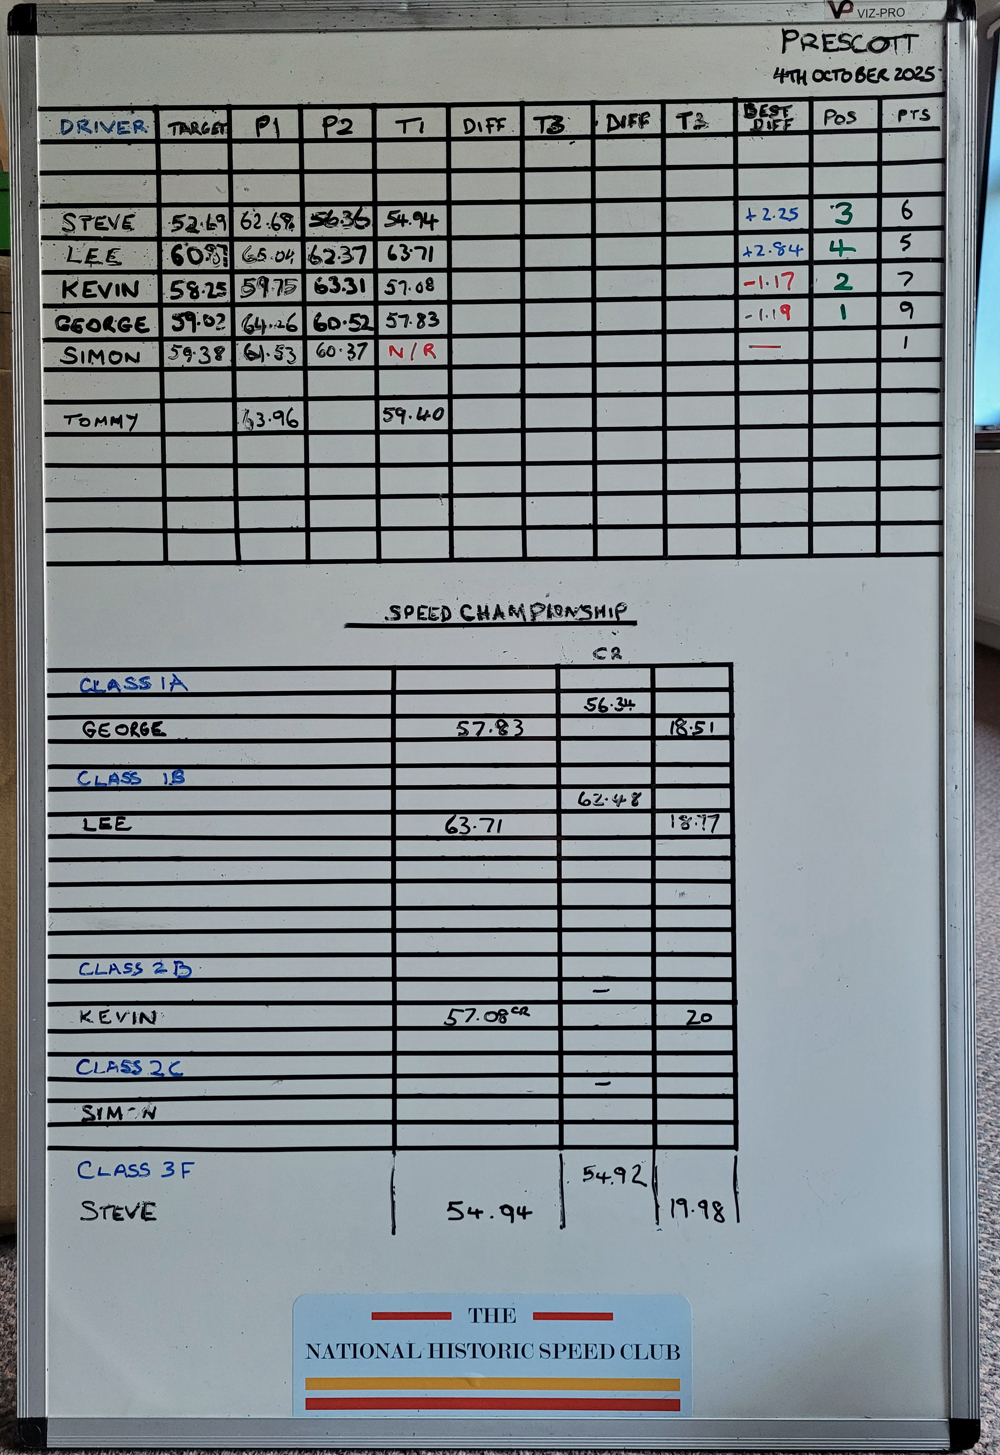 VP VIZ-PRO
PRESCOTT
4TH OCTOBER 2025
DRIVER TARGET P1 P2 T1 DIFF T3 DIFF T3 BEST DIFF POS PTS
STEVE 52.69 62.68 56.36 54.94 +2.25 3 6
LEE 60.87 65.04 62.37 63.71 +2.84 4 5
KEVIN 58.25 59.75 63.31 57.08 -1.17 2 7
GEORGE 59.02 64.26 60.52 57.83 -1.19 1 9
SIMON 59.38 61.53 60.37 N/R — 1
TOMMY 63.96 59.40
SPEED CHAMPIONSHIP
CR
CLASS 1A
56.34
GEORGE 57.83 18.51
CLASS 1B
62.48
LEE 63.71 18.77
CLASS 2B
–
KEVIN 57.08 CR 20
CLASS 2C
–
SIMON
CLASS 3F 54.92
STEVE 54.94 19.98
THE
NATIONAL HISTORIC SPEED CLUB